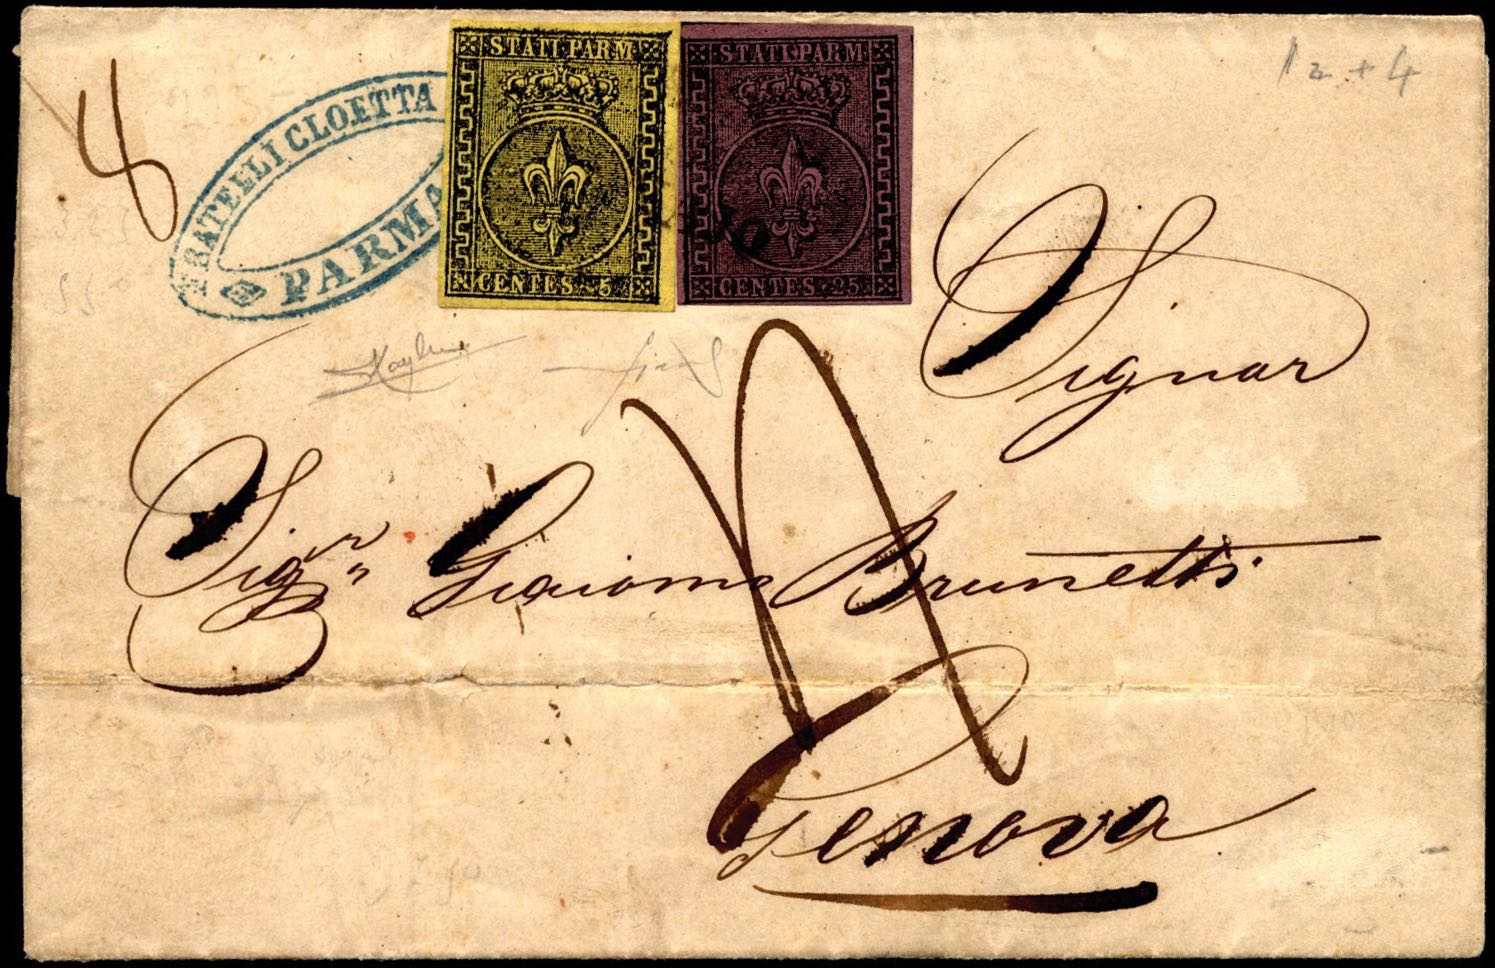 8
FRATELLI CLOETTA
PARMA
STATI PARM
CENTES. 5
STATI PARM
CENTES. 25
1a + 4
Signor
Sigr. Giacomo Brunetti
Genova